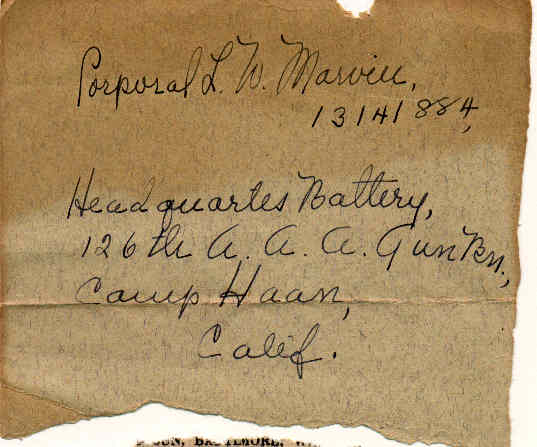 Corporal L. W. Marvill,
13141884,
Headquartes Battery,
126th A. A. A. Gun Bn.,
Camp Haan,
Calif.
SUN, BALTIMORE, W